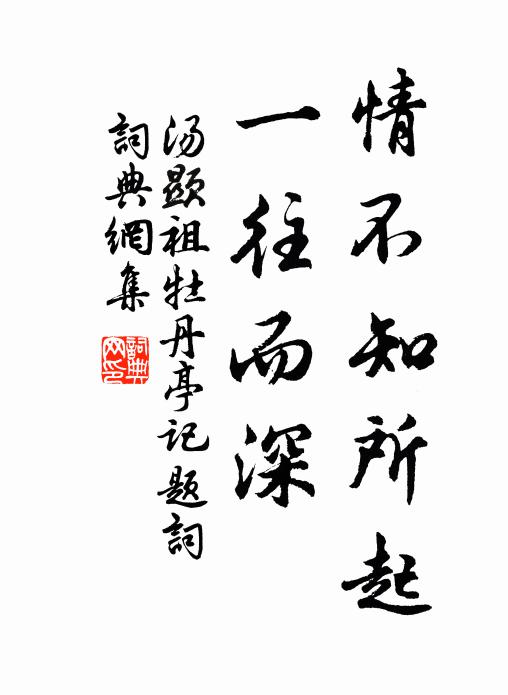 情不知所起
一往而深
汤显祖牡丹亭记题詞
詞典網集
詞典
网印